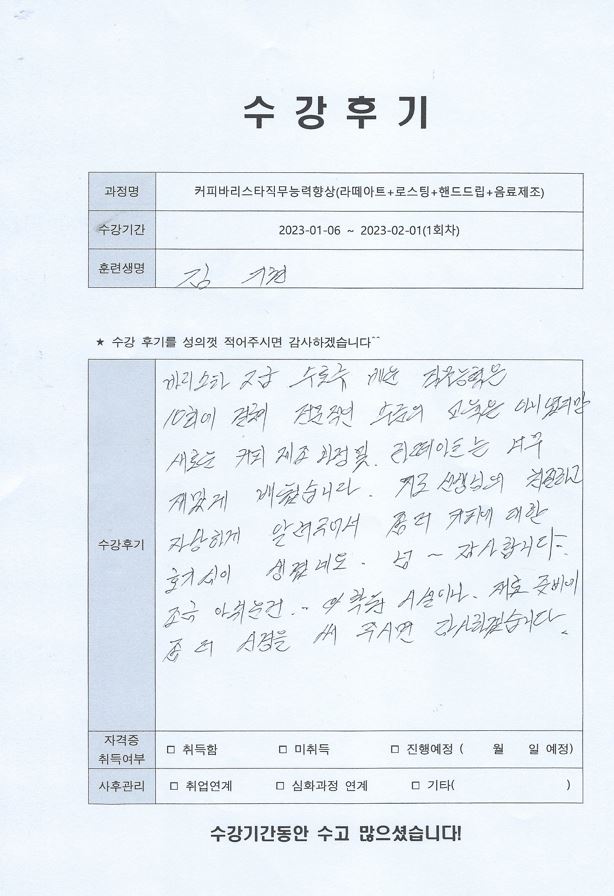 수강후기
과정명 커피바리스타직무능력향상(라떼아트+로스팅+핸드드립+음료제조)
수강기간 2023-01-06 ~ 2023-02-01(1회차)
훈련생명 김
★ 수강 후기를 성의껏 적어주시면 감사하겠습니다^^
수강후기
바리스타 2급 수료후 배운 직무능력은
10회에 걸쳐 전문적인 수준의 교육은 아니였지만
새로운 커피 제조 과정 및 라떼아트는 너무
재밌게 배웠습니다. 지도 선생님의 친절하고
자상하게 알려주셔서 좀 더 커피에 대한
호기심이 생겼네요. 넘~ 감사합니다
조금 아쉬운건.. 학원 시설이나, 재료 준비에
좀 더 신경을 써 주시면 감사하겠습니다.
자격증
취득여부 □ 취득함 □ 미취득 □ 진행예정 ( 월 일 예정)
사후관리 □ 취업연계 □ 심화과정 연계 □ 기타( )
수강기간동안 수고 많으셨습니다!